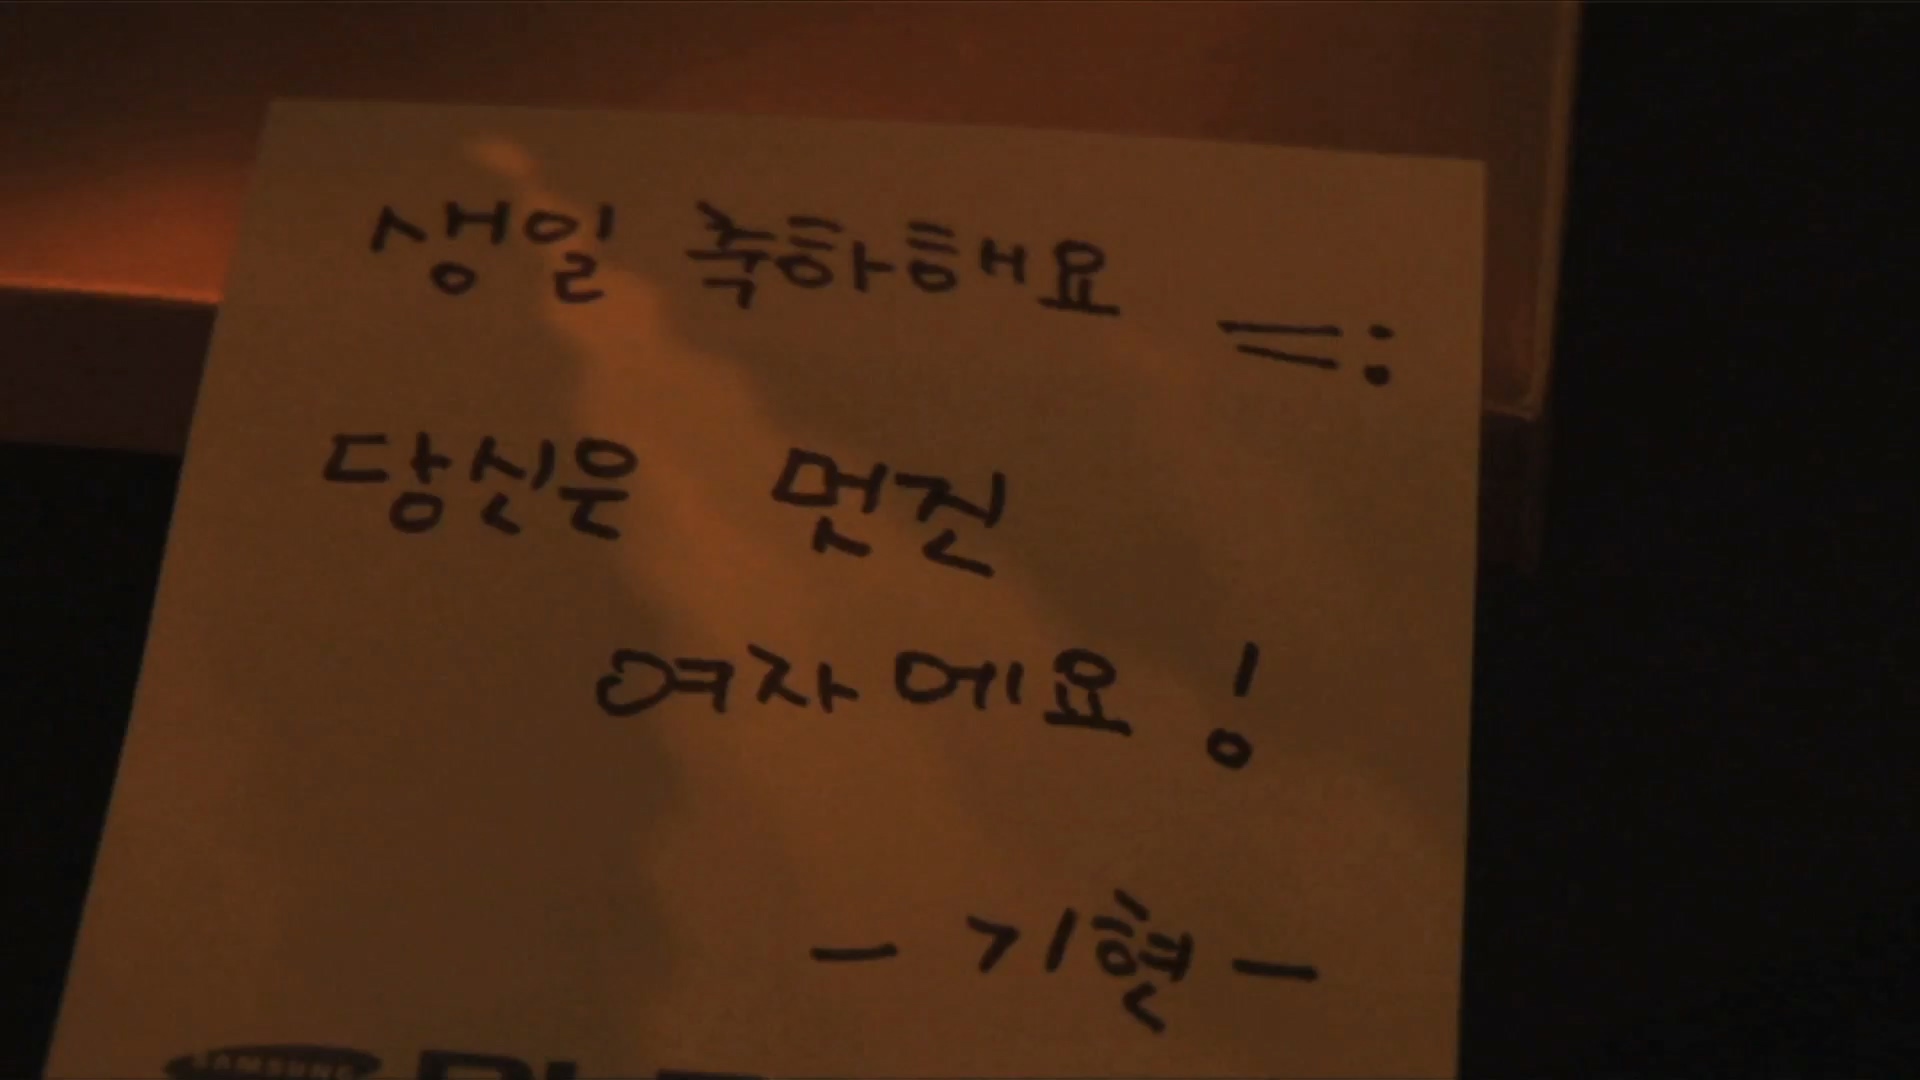 생일 축하해요 =:
당신은 멋진
여자에요!
- 기현 -
SAMSUNG